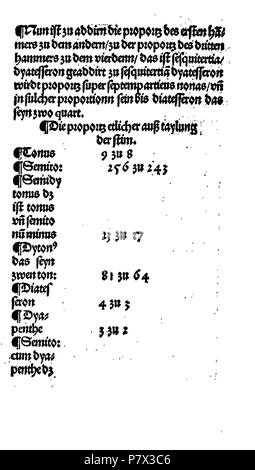 ¶Nun ist zu addirn die proportz des ersten hā-
mers zu dem andern/zu der proportz des dritten
hammers zu dem vierdenn/ das ist sesquitertia/
dyatesseron geaddirt zu sesquitertiā dyatesseron
wirdt proportz super septempartiens nonas/ vñ
jn sulcher proportionn sein bis diatesseron das
seyn zwo quart.
¶Die proportz etlicher auß taylung
der stim.
¶Tonus 9 zu 8
¶Semito: 256 zu 243
¶Semidy
tonus dz
ist tonus
vñ semito
nū minus zu
¶Dyton⁹
das seyn
zwen ton: 81 zu 64
¶Diates
seron 4 zu 3
¶Dya-
penthe 3 zu 2
¶Semito:
cum dya-
penthe dz
alamy
Image ID: P7X3C6
www.alamy.com